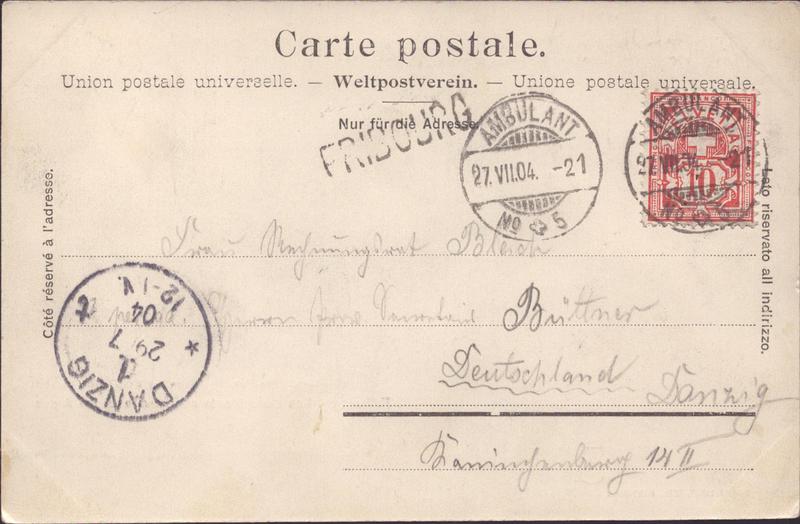 Carte postale.
Union postale universelle. — Weltpostverein. — Unione postale universale.
Nur für die Adresse
FRIBOURG
AMBULANT
27.VII.04. -21
No 5
AMBULANT
HELVETIA
27.VII.04. -21
10
Côté réservé à l'adresse.
Lato riservato all indirizzo.
Frau Rechnungsrat
Herrn Secretair Büttner
Deutschland Danzig
Kaninchenberg 14 II
DANZIG
1
29 7
04
12-1N.